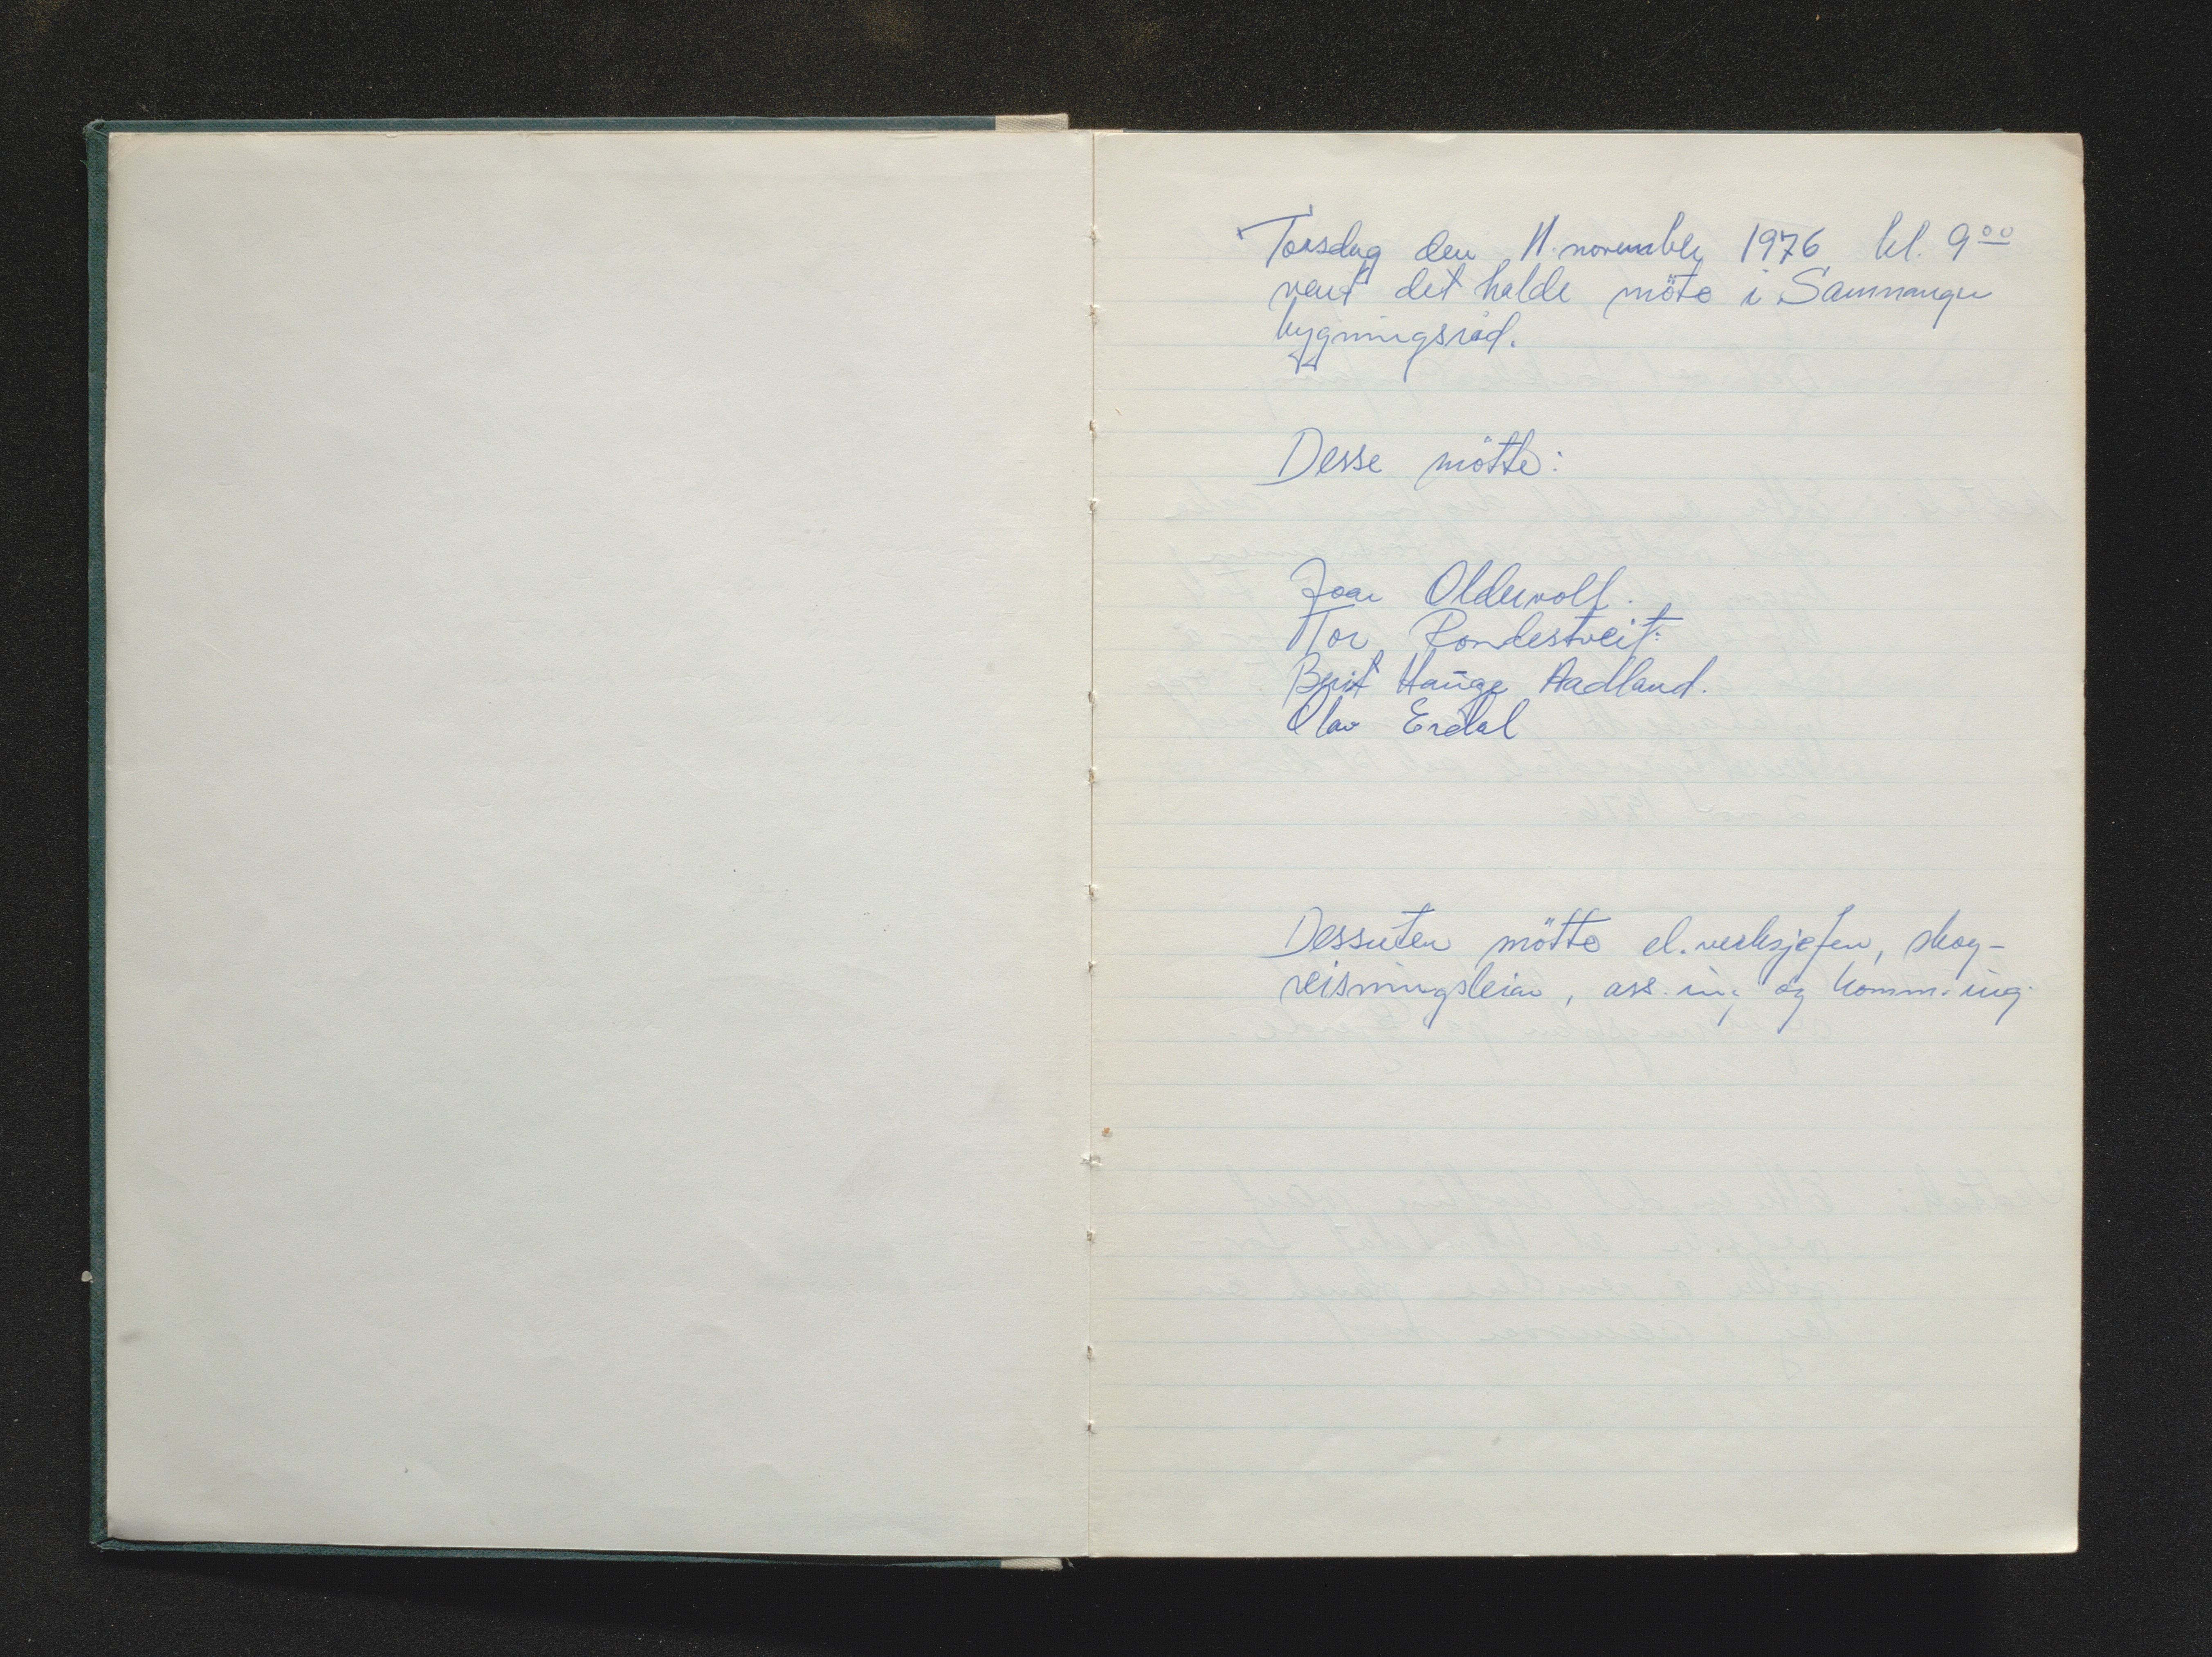 Torsdag den 11. november 1976 kl. 9⁰⁰
vart det halde möte i Samnanger
bygningsråd.
Desse mötte:
Joar Oldervoll.
Tor Rondestveit.
Berit Hauge Aadland.
Olav Erdal
Dessuten mötte el.verksjefen, skog-
reisningsleiar, ass. ing og komm. ing.